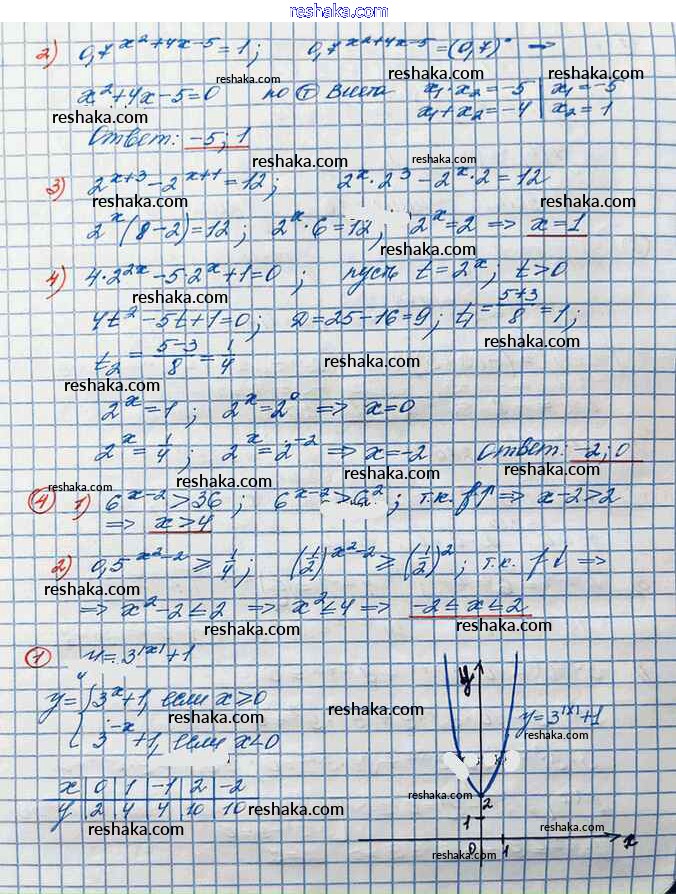 reshaka.com
2) 0,7^(x²+4x-5) = 1; 0,7^(x²+4x-5) = (0,7)° ⇒
reshaka.com reshaka.com
x²+4x-5=0 по Ⓣ Виета x₁·x₂=-5 | x₁=-5
x₁+x₂=-4 | x₂=1
reshaka.com reshaka.com
Ответ: -5; 1
reshaka.com reshaka.com
3) 2^(x+3) - 2^(x+1) = 12; 2^x·2³ - 2^x·2 = 12
reshaka.com reshaka.com
2^x(8-2)=12; 2^x·6=12, 2^x=2 ⇒ x=1
reshaka.com reshaka.com
4) 4·2^(2x) - 5·2^x + 1 = 0; пусть t=2^x; t>0
reshaka.com reshaka.com
4t²-5t+1=0; D=25-16=9; t₁=(5+3)/8=1;
reshaka.com reshaka.com
t₂=(5-3)/8=1/4
reshaka.com reshaka.com
2^x=1; 2^x=2⁰ ⇒ x=0
reshaka.com reshaka.com
2^x=1/4; 2^x=2^(-2) ⇒ x=-2 Ответ: -2; 0
reshaka.com reshaka.com reshaka.com
④ 1) 6^(x-2)>36; 6^(x-2)>6²; т.к. f↑ ⇒ x-2>2
⇒ x>4
reshaka.com reshaka.com
2) 0,5^(x²-2) ≥ 1/4; (1/2)^(x²-2) ≥ (1/2)²; т.к. f↓ ⇒
reshaka.com reshaka.com
⇒ x²-2≤2 ⇒ x²≤4 ⇒ -2≤x≤2
reshaka.com reshaka.com
① y=3^|x|+1
reshaka.com reshaka.com
y={3^x+1, если x≥0
reshaka.com
3^(-x)+1, если x<0
reshaka.com
x | 0 | 1 | -1 | 2 | -2
y | 2 | 4 | 4 | 10 | 10
reshaka.com
reshaka.com
y
y=3^|x|+1
reshaka.com
reshaka.com
2
1
reshaka.com
0 1 x
reshaka.com